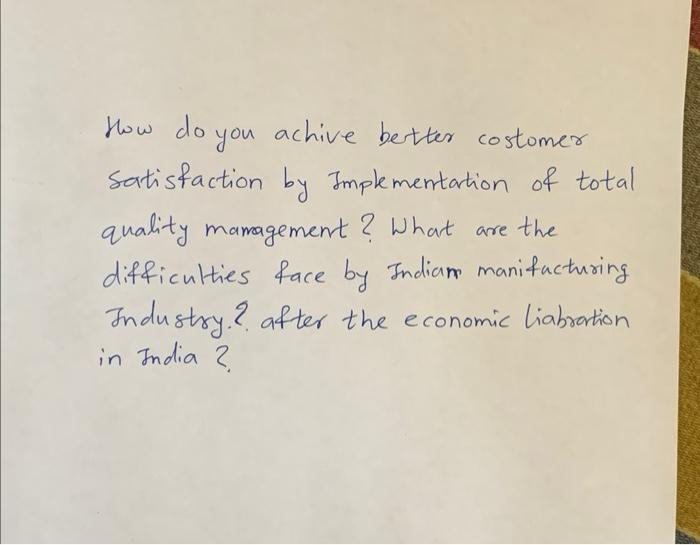 How do you achive better costomer
satisfaction by Implementation of total
quality management ? What are the
difficulties face by Indian manifacturing
Industry.? after the economic liabration
in India ?